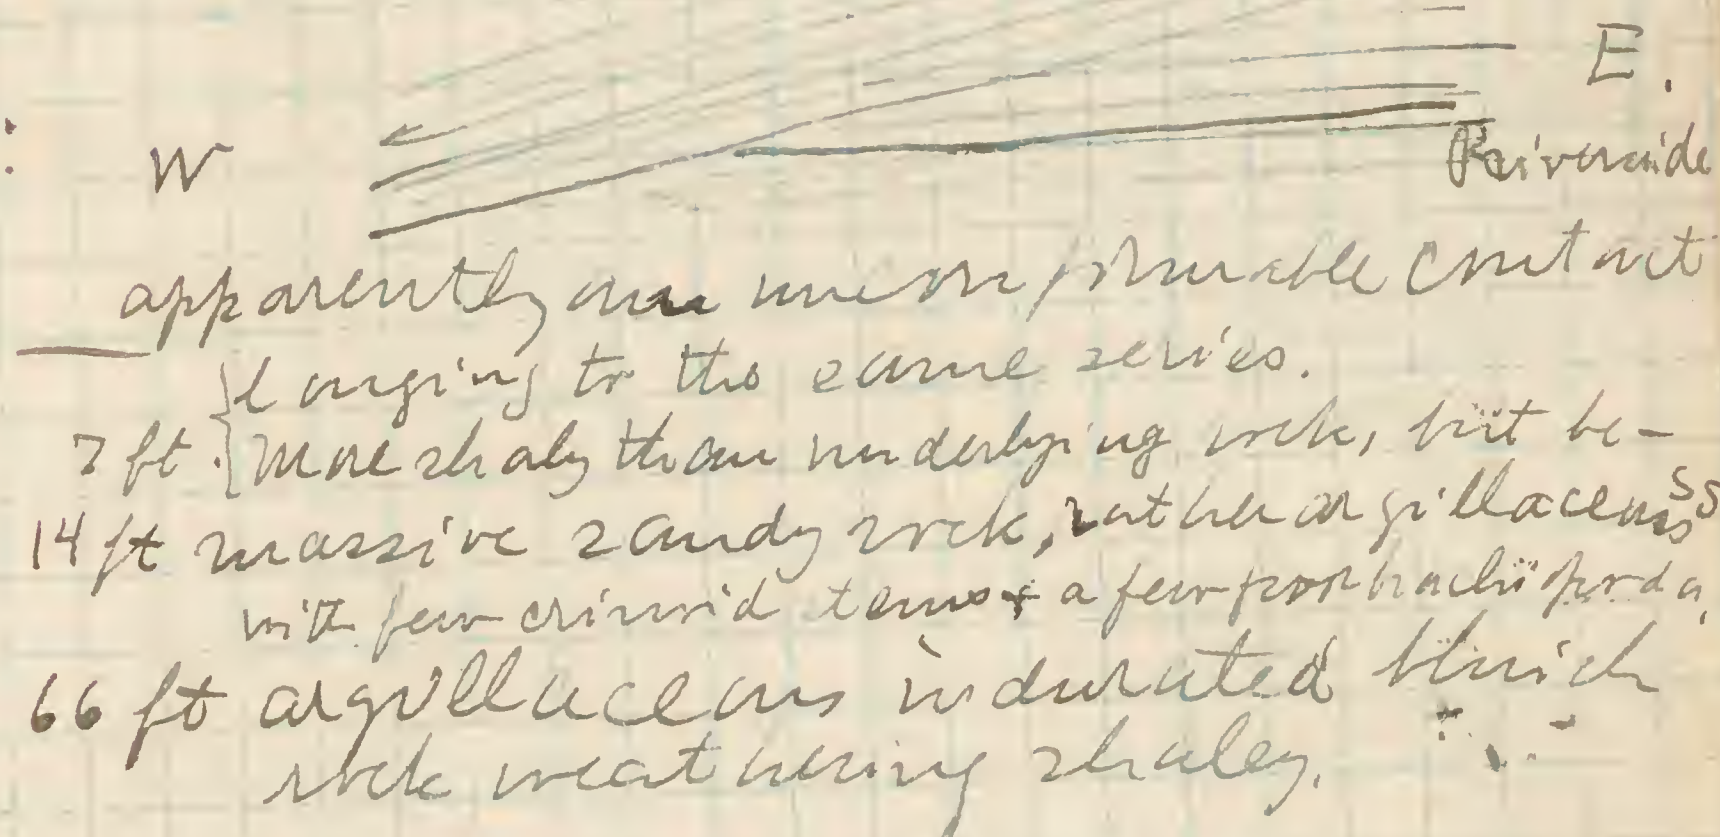 E.
W
Riverside
apparently an unconformable contact
longing to the same series.
7 ft. { more shaly than underlying rock, but be-
14 ft massive sandy rock, rather argillaceous ss
with few crinoid stems + a few poor brachiopoda,
66 ft argillaceous indurated bluish
rock weathering shaley.